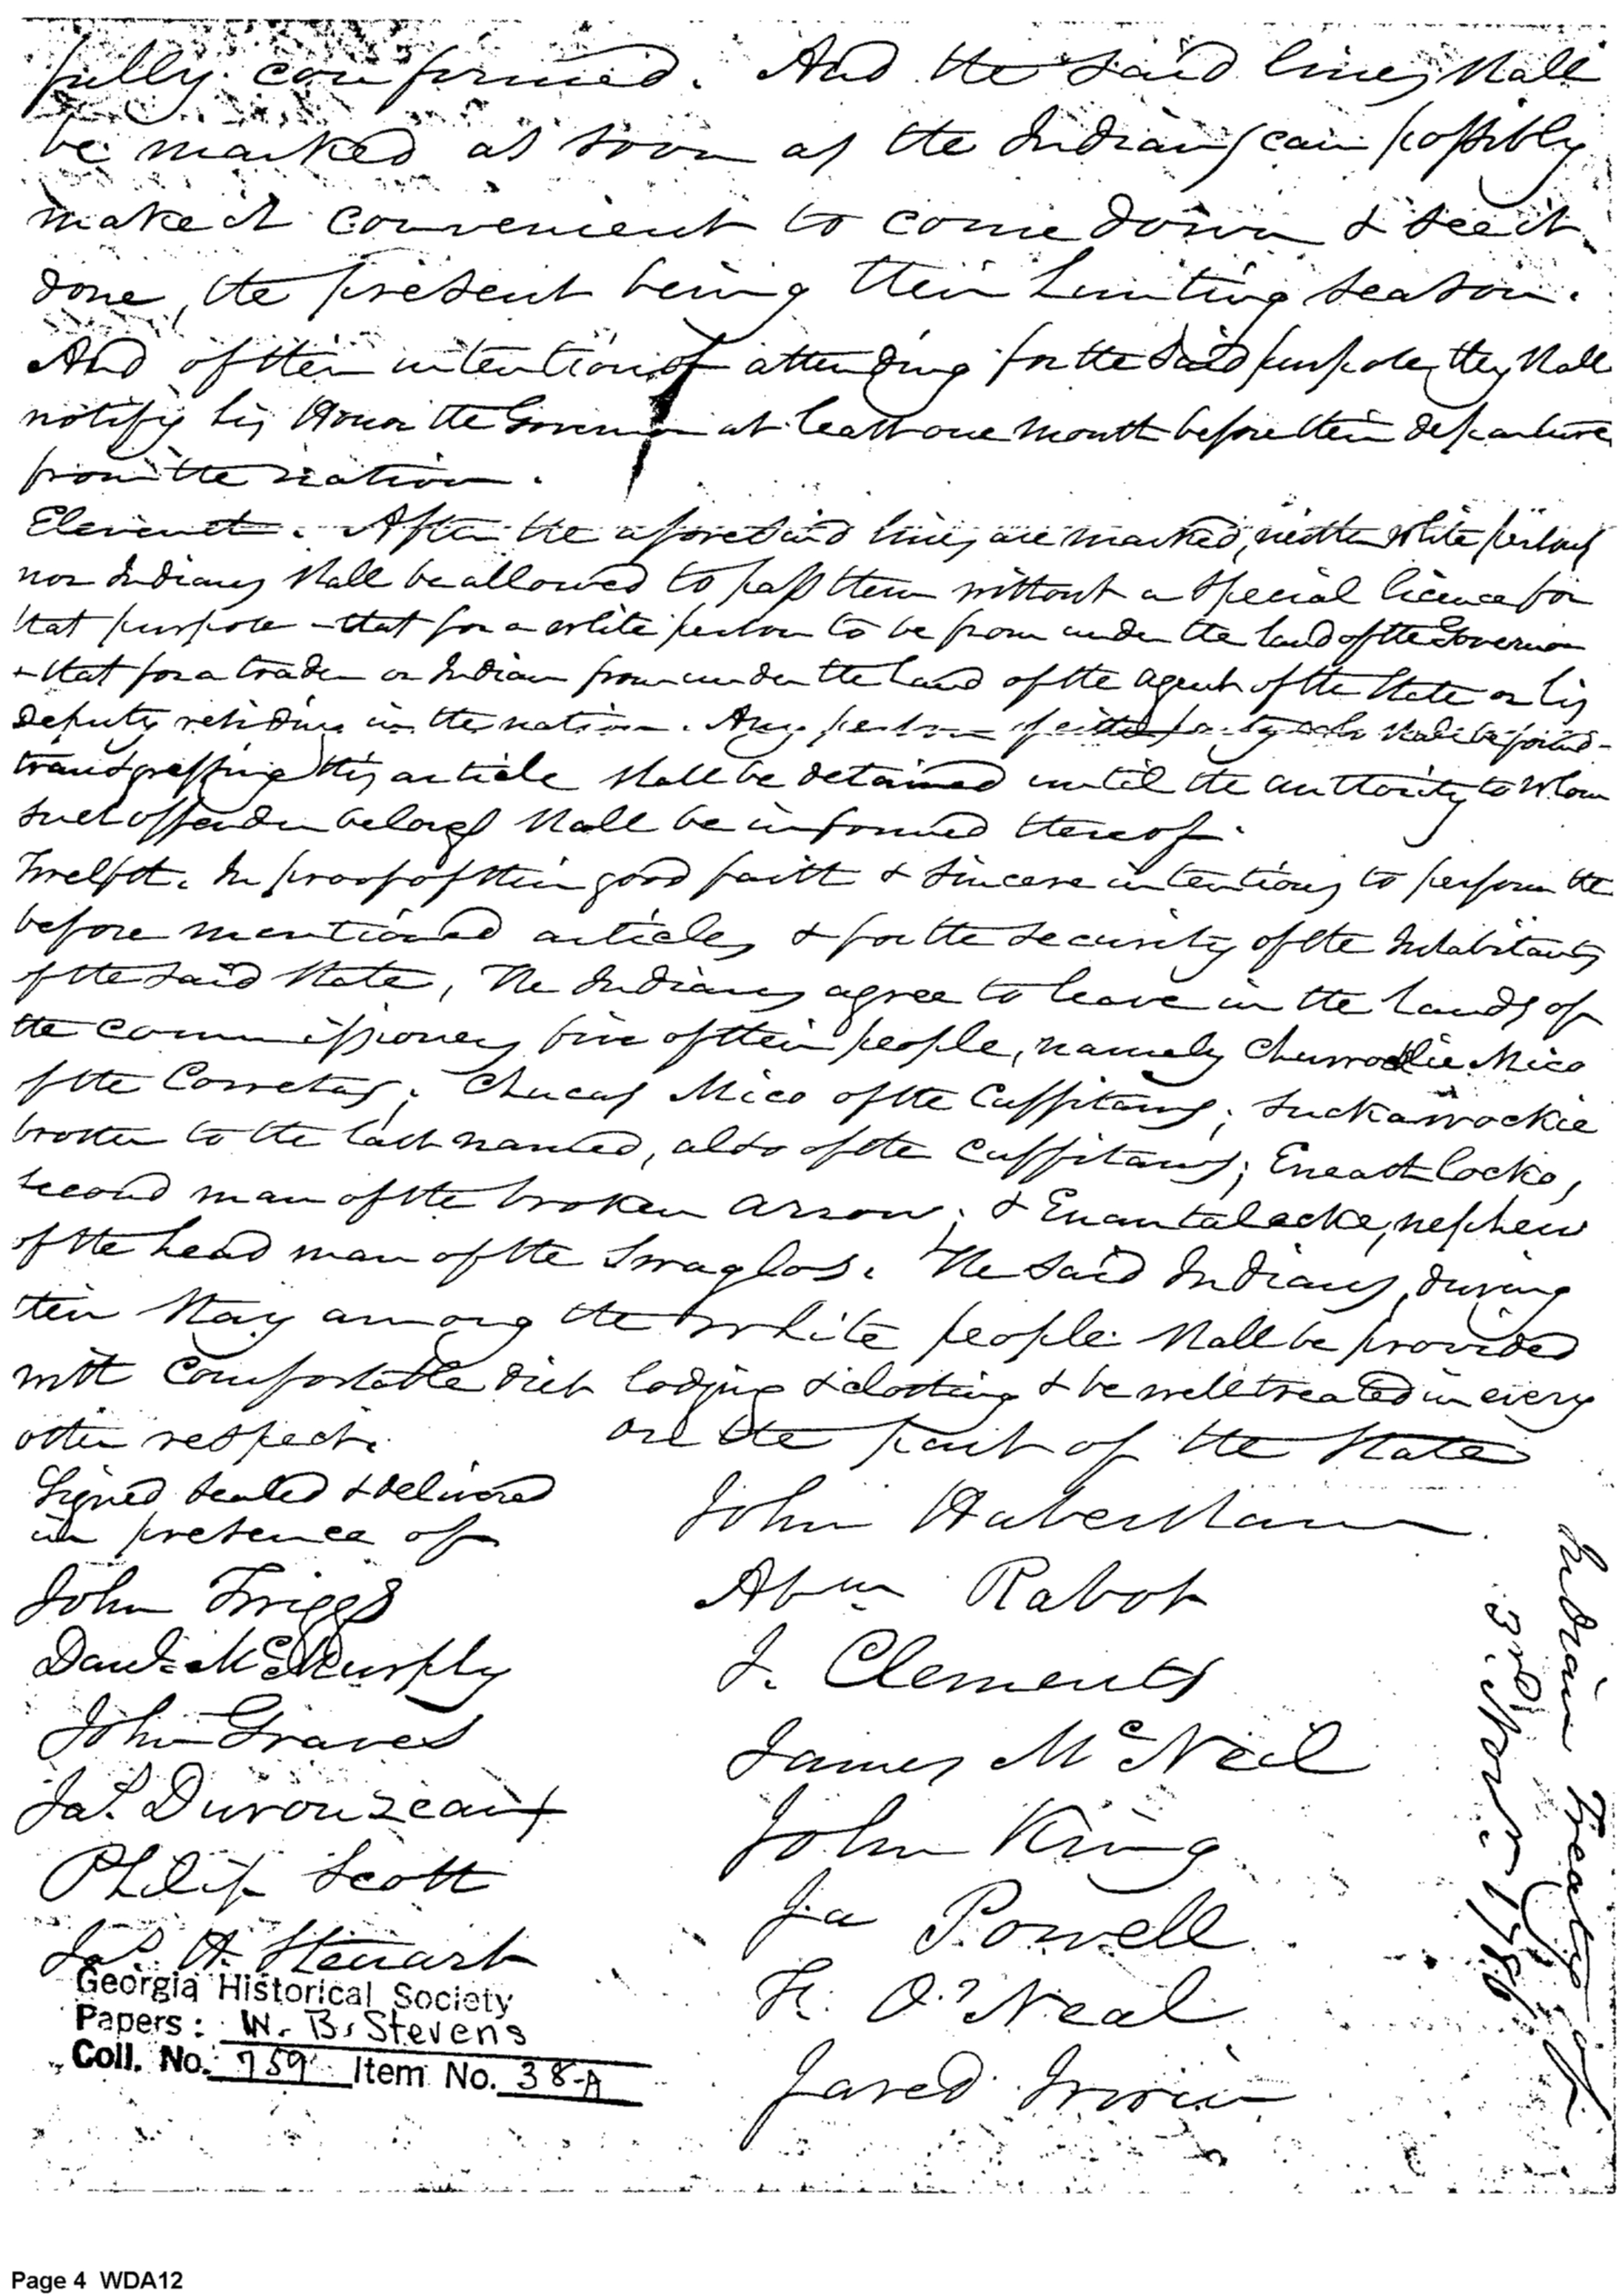 fully confirmed. And the said lines shall
be marked as soon as the Indians can possibly
make it convenient to come down & see it
done, the present being their hunting season.
And of their intention of attending for the said purpose, they shall
notify his Honor the Governor at least one month before their departure
from the nation.
Eleventh. After the aforesaid lines are marked, neither white persons
nor Indians shall be allowed to pass them without a special licence for
that purpose – that for a white person to be from under the hand of the Governor
& that for a trader or Indian from under the hand of the agent of the State or his
deputy residing in the nation. Any person of either party who shall be found
transgressing this article shall be detained until the authority to whom
such offender belongs shall be informed thereof.
Twelfth. In proof of their good faith & sincere intentions to perform the
before mentioned articles & for the security of the Inhabitants
of the said State, The Indians agree to leave in the hands of
the commissioners five of their people, namely Chuwocklie Mico
of the Cowetas; Chucas Mico of the Cussitaws; Suckawockie
brother to the last named, also of the Cussitaws; Eneath locko,
second man of the broken arrow; & Enautalecke, nephew
of the head man of the Swaglos. The said Indians, during
their stay among the white people shall be provided
with comfortable diet lodging & clothing & be well treated in every
other respect. On the part of the State
Signed sealed & delivered
in presence of
John Twiggs
Danl. McMurphy
John Graves
Jas. Durouzeaux
Philip Scott
Jas. H. Steuart
John Habersham
Abm. Rabot
J. Clements
James McNeil
John King
Ja Powell
F. O'Neal
Jared Irwin
Indian Treaty of
3rd. Novr. 1786
Georgia Historical Society
Papers: W. B. Stevens
Coll. No. 759 Item No. 38-A
Page 4 WDA12